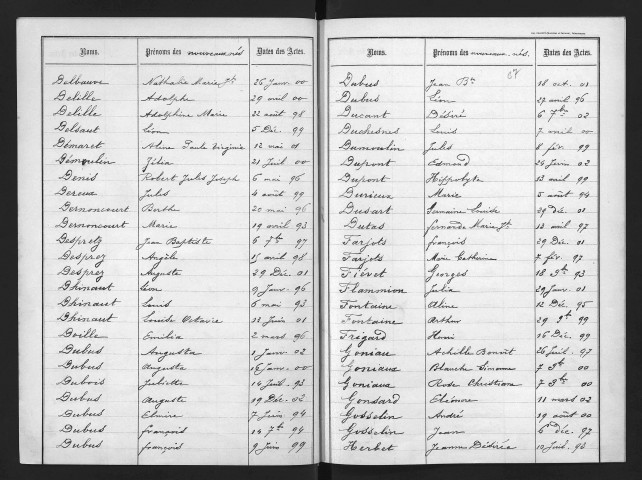 Noms. Prénoms des nouveaux nés Dates des Actes.
Delbauve Nathalie Marie Jh 26 Janv. 00
Delille Adolphe 29 avril 00
Delille Adolphine Marie 22 août 98
Delsaut Léon 5 Déc. 99
Démaret Aline Paule Virginie 12 mai 01
Démoulin Zélia 21 Juil 00
Denis Robert Jules Joseph 6 mai 96
Dereux Jules 4 août 99
Dernoncourt Berthe 20 mai 96
Dernoncourt Marie 19 avril 93
Desprez Jean Baptiste 6 7bre 97
Desprez Angèle 15 avril 98
Desprez Auguste 29 Déc. 01
Dhinaut Léon 9 Janv. 96
Dhinaut Louis 6 mai 93
Dhinaut Louise Octavie 22 Juin 01
Doille Emilia 2 mars 96
Dubus Augusta 1 Janv. 02
Dubus Augusta 16 Janv. 00
Dubois Juliette 14 Juil. 93
Dubus Auguste 19 Déc. 02
Dubus Elmire 7 Juin 94
Dubus françois 14 7bre 94
Dubus françois 9 Juin 99
Noms. Prénoms des nouveaux-nés. Dates des Actes.
Dubus Jean Bte 18 oct. 01
Dubus Léon 27 avril 96
Ducant Désiré 6 7bre 02
Duchesnes Louis 7 avril 00
Dumoulin Jules 8 fév. 99
Dupont Edmond 26 Janv 02
Dupont Hippolyte 13 avril 99
Durieux Marie 5 août 94
Dusart Germaine Louise 29 déc. 01
Dutas fernande Marie Jh 13 avril 97
Farjots françois 29 Déc. 01
Farjots Marie Catherine 7 fév. 97
Fiévet Georges 18 9bre 93
Flammion Julia 29 Janv. 01
Fontaine Aline 12 Déc. 95
Fontaine Arthur 29 9bre 99
Frigard Henri 16 Déc. 99
Goniau Achille Benoit 26 Juil. 97
Goniaux Blanche Simonne 7 9bre 00
Goniaux Rose Christiane 7 9bre 00
Gonsard Eléonore 11 mars 02
Gosselin André 19 août 00
Gosselin Jean 6 déc. 97
Herbet Jeanne Désirée 10 Juil. 93